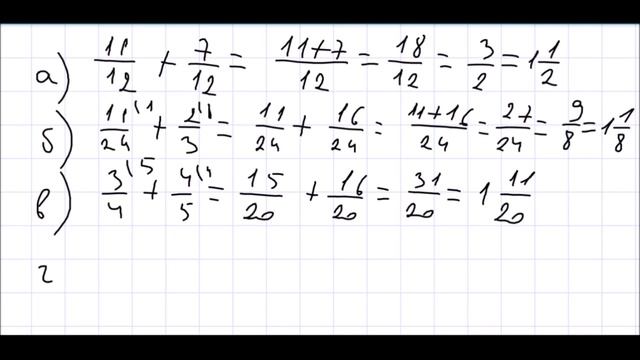 а) 11/12 + 7/12 = 11+7/12 = 18/12 = 3/2 = 1 1/2
б) 11/24 + 2/3 = 11/24 + 16/24 = 11+16/24 = 27/24 = 9/8 = 1 1/8
в) 3/4 + 4/5 = 15/20 + 16/20 = 31/20 = 1 11/20
г